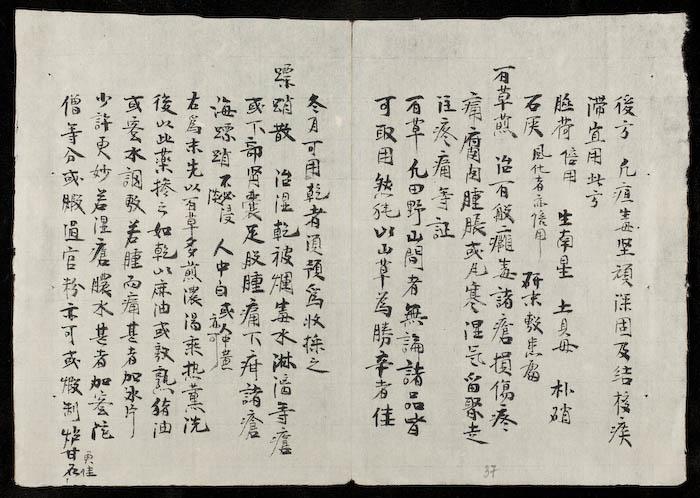 後方 凡疽毒坚頑深固及结核痰
滞宜用此方
倍用 生南星 土貝母 朴硝
石灰 風化者亦倍用 研末敷患處
百草煎 治百般癰毒諸瘡損傷疼
痛腐肉腫脹或凡寒湿气留聚走
注疼痛等証
百草凡田野山間者無論諸品皆
可取用然以山草為勝辛者佳
冬月可用乾者須預爲收採之
螵蛸散 治湿乾被爛毒水淋漓等瘡
或下部腎囊足股腫痛下疳諸瘡
海螵蛸 不必浸 人中白 或人中黄亦可
右爲末先以百草多煎濃湯乘热薰洗
後以此藥摻之如乾以麻油或熟猪油
或蜜水調敷若腫而痛甚者加冰片
少許更妙若湿瘡膿水甚者加密陀
僧等分或煅過官粉亦可或煅制炉甘石更佳
37